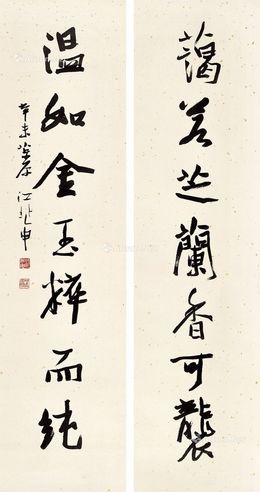 藹若芝蘭香可襲
温如金玉粹而純
辛未
江兆申